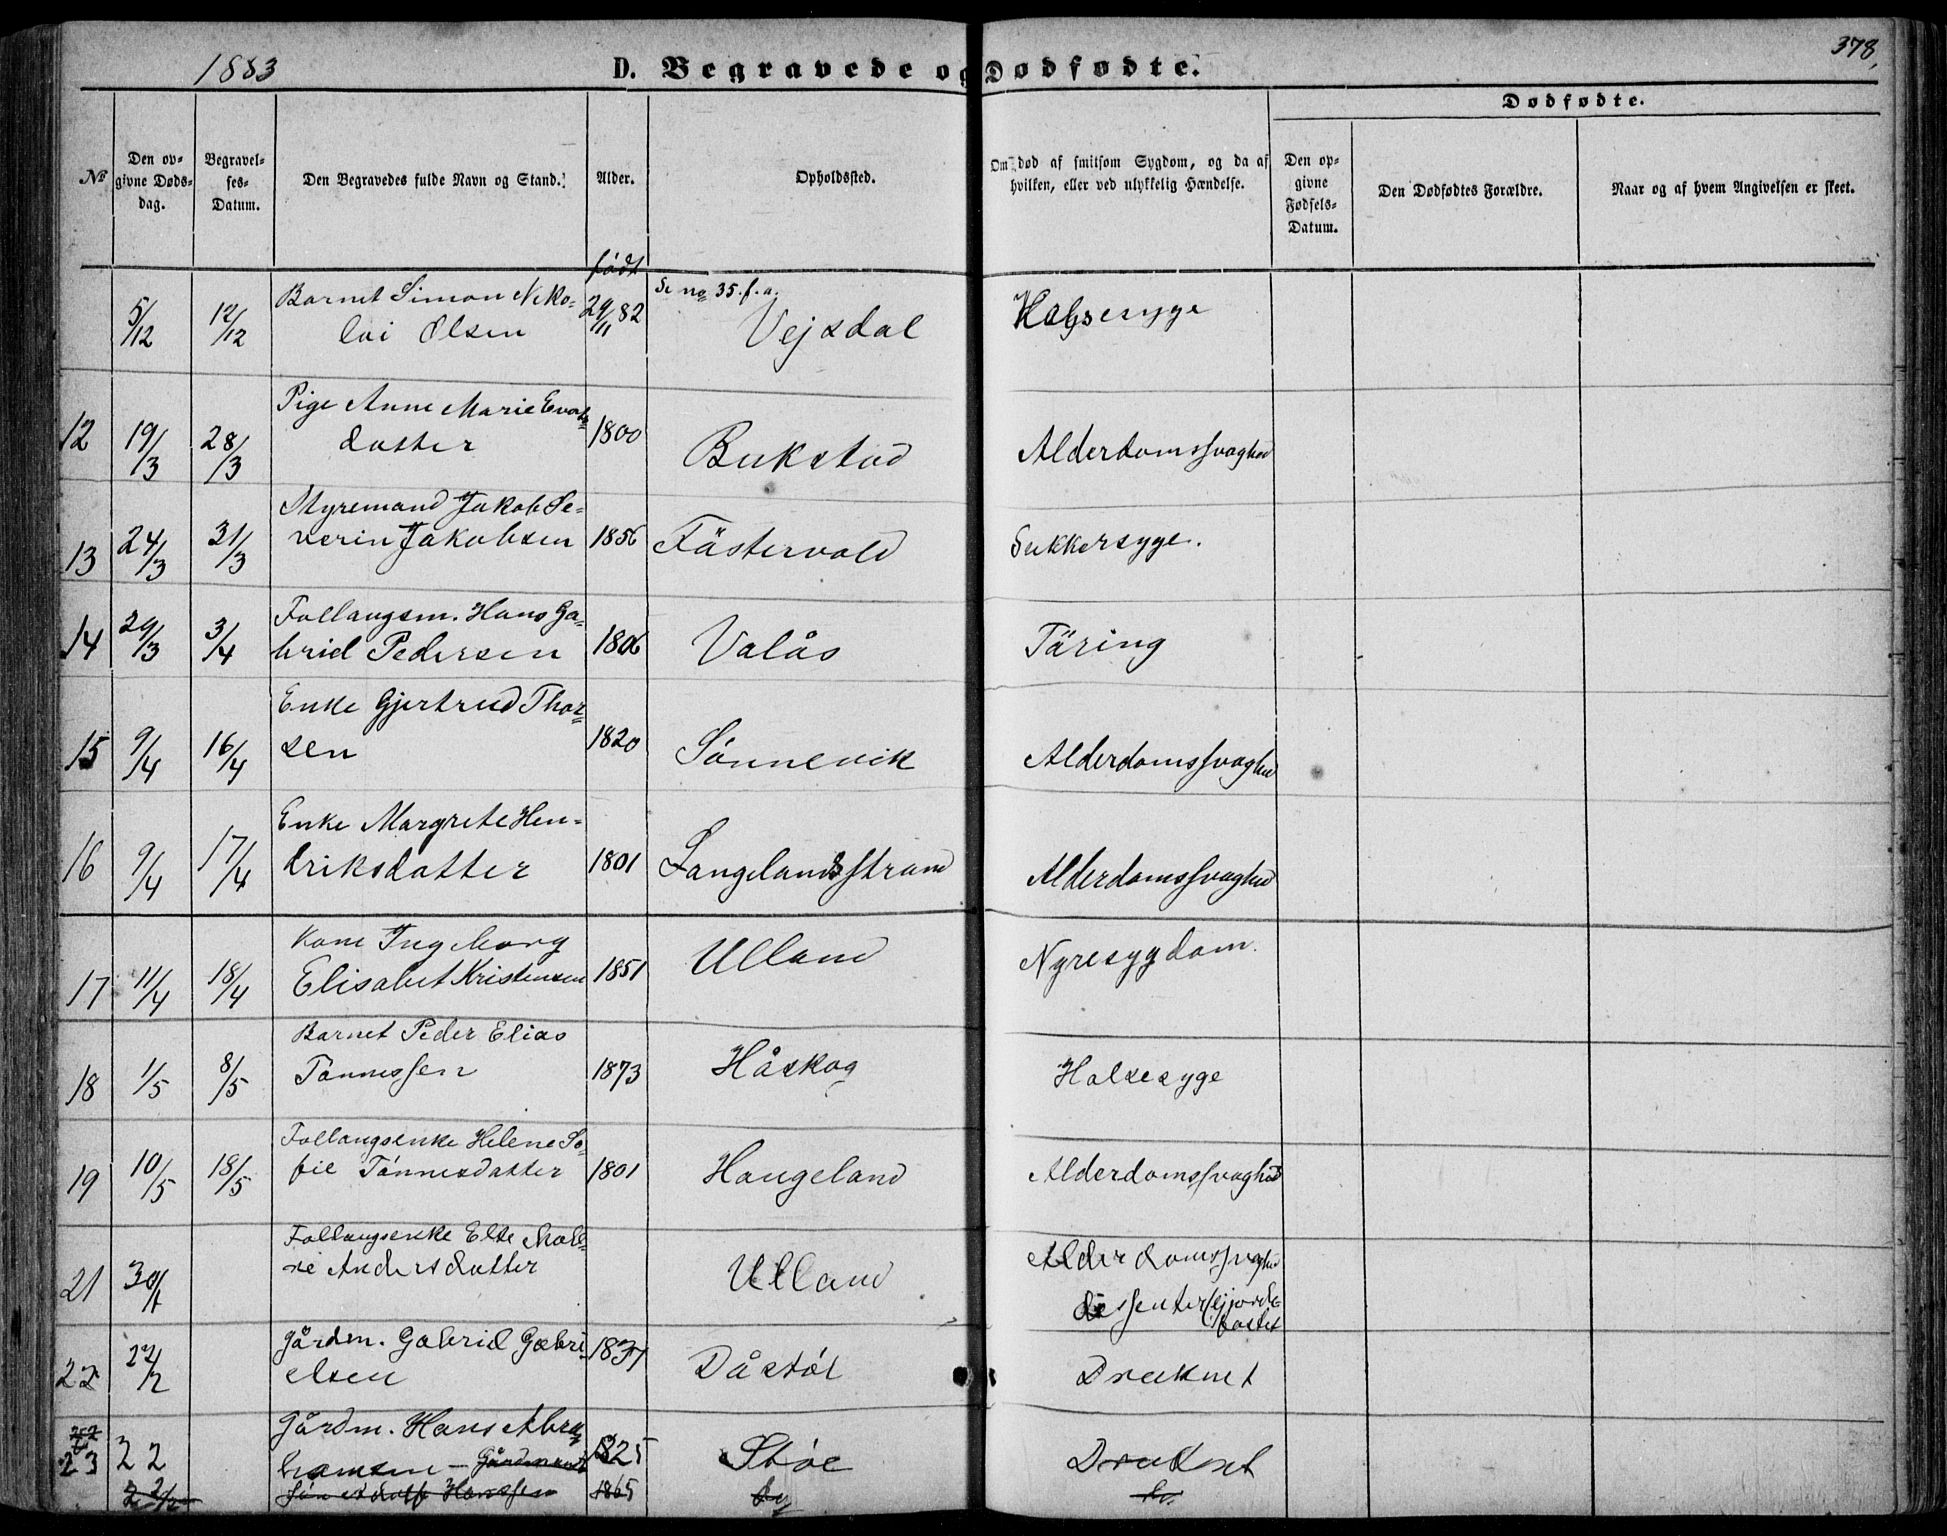 1883
D. Begravede og Dødfødte.
378,
Dødfødte.
No
Den op-
givne Døds-
dag.
Begravel-
ses-
Datum.
Den Begravedes fulde Navn og Stand.
Alder.
Opholdssted.
Om død af smitsom Sygdom, og da af
hvilken, eller ved ulykkelig Hændelse.
Den op-
givne
Fødsels-
Datum.
Den Dødfødtes Forældre.
Naar og af hvem Angivelsen er skeet.
født
5/12 12/12 Barnet Simon Niko-
lai Olsen
29/11 82
Se no 35. f. a.
Vejsdal
Halsesyge
12 19/3 28/3 Pige Anne Marie
datter
1800 Bukstad Alderdomssvaghed
13 24/3 31/3 Myremand Jakob Se-
verin Jakobsen 1856 Fästervold Sukkersyge.
14 29/3 3/4 Follaugsm. Hans Ga-
briel Pedersen 1806 Valås Täring
15 9/4 16/4 Enke Gjertrud Thor-
sen 1820 Sönnevik Alderdomssvaghed
16 9/4 17/4 Enke Margrete Hen-
driksdatter 1801 Langelandsstrand Alderdomssvaghed
17 11/4 18/4 Kone Ingeborg
Elisabet Kristensen 1851 Ulland Nyresygdom.
18 1/5 8/5 Barnet Peder Elias
Tönnessen 1873 Håskog Halsesyge
19 10/5 18/5 Follaugsenke Helene So-
fie Tönnesdatter 1801 Haugeland Alderdomssvaghed
21 30/1 Follaugsenke Elte
Andersdatter Ulland Alderdomssvaghed
dissenter
22 22/2 Gårdm. Gabriel Gabri-
elsen 1837 Dåstöl Druknet
22
23 22 Gårdm. Hans Abra-
hamsen - Gårdmands 1825 Stöle Druknet
22/2 Hanssen 1865 do.